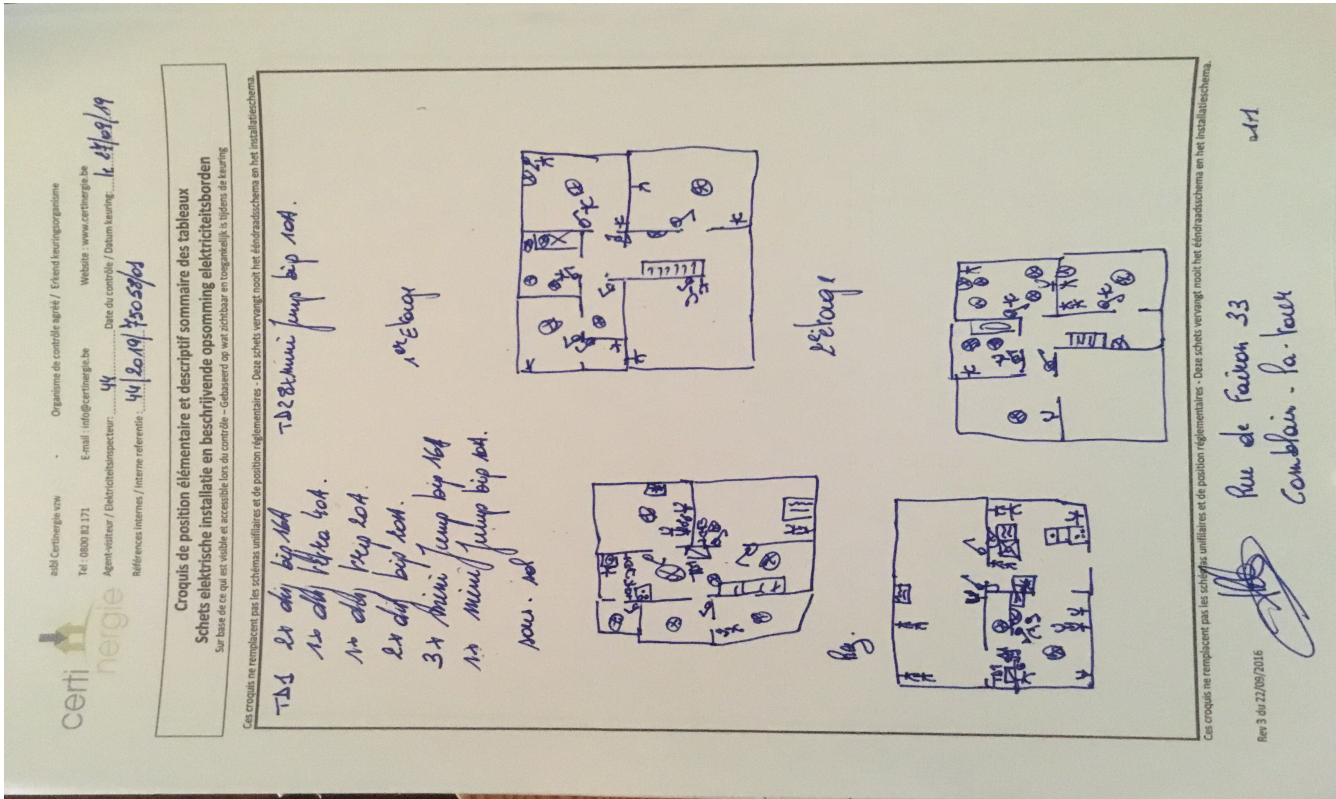 certinergie
asbl Certinergie vzw - Organisme de contrôle agréé / Erkend keuringsorganisme
Tel : 0800 82 171 E-mail : info@certinergie.be Website : www.certinergie.be
Agent-visiteur / Elektriciteitsinspecteur: 44 Date du contrôle / Datum keuring: le 27/09/19
Références internes / Interne referentie :
Croquis de position élémentaire et descriptif sommaire des tableaux
Schets elektrische installatie en beschrijvende opsomming elektriciteitsborden
Sur base de ce qui est visible et accessible lors du contrôle – Gebaseerd op wat zichtbaar en toegankelijk is tijdens de keuring
Ces croquis ne remplacent pas les schémas unifilaires et de position réglementaires - Deze schets vervangt nooit het ééndraadsschema en het installatieschema.
TD1 2x bip 16A TD2 8x mini jump bip 10A.
1x 40A.
1x 20A.
2x bip 10A.
3x mini jump bip 16A
1x mini jump bip 10A.
sous-sol
1er Etage
Rez.
2e étage
TD1
TD2
Ces croquis ne remplacent pas les schémas unifilaires et de position réglementaires - Deze schets vervangt nooit het ééndraadsschema en het installatieschema.
Rev 3 du 22/09/2016
Rue de Fairon 33
Comblain-la-tour